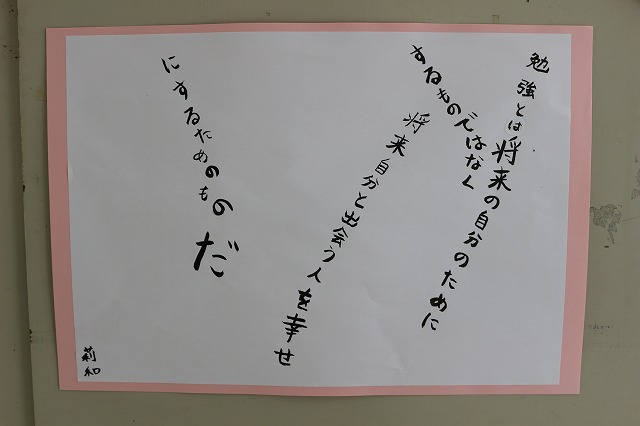 勉強とは将来の自分のために
するものではなく
将来自分と出会う人を幸せ
にするためのものだ
莉和